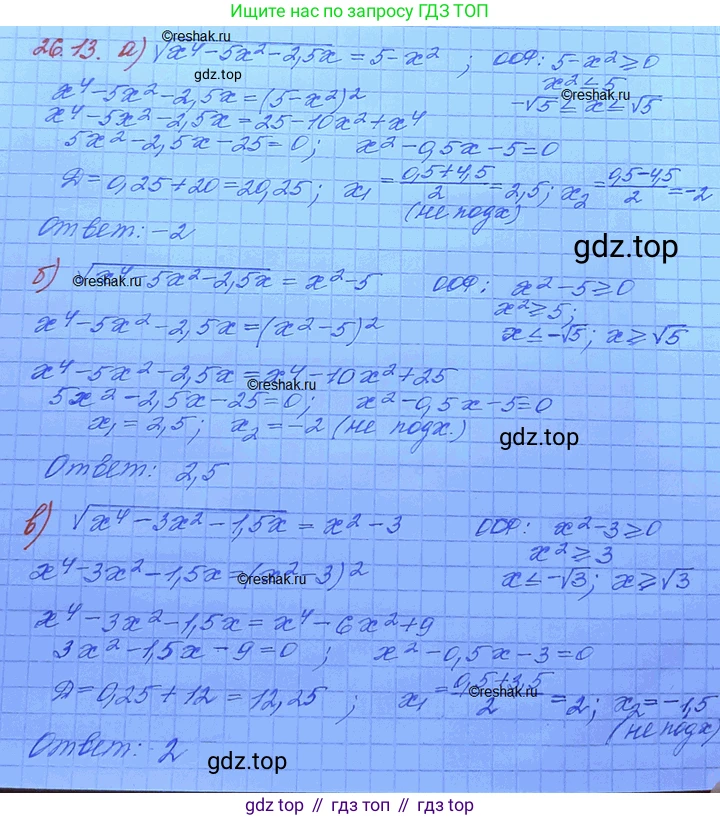 Ищите нас по запросу ГДЗ ТОП
©reshak.ru
26.13. а) √(x⁴-5x²-2,5x) = 5-x² ; ООФ: 5-x²≥0
gdz.top
x²≤5
x⁴-5x²-2,5x=(5-x²)² -√5≤x≤√5
x⁴-5x²-2,5x=25-10x²+x⁴
5x²-2,5x-25=0; x²-0,5x-5=0
Д=0,25+20=20,25; x₁=(0,5+4,5)/2=2,5; x₂=(0,5-4,5)/2=-2
(не подх)
Ответ: -2
gdz.top
б) √(x⁴-5x²-2,5x) = x²-5 ООФ: x²-5≥0
©reshak.ru
x²≥5;
x⁴-5x²-2,5x=(x²-5)² x≤-√5; x≥√5
x⁴-5x²-2,5x=x⁴-10x²+25
©reshak.ru
5x²-2,5x-25=0; x²-0,5x-5=0
x₁=2,5; x₂=-2 (не подх.)
gdz.top
Ответ: 2,5
в) √(x⁴-3x²-1,5x) = x²-3 ООФ: x²-3≥0
x²≥3
x⁴-3x²-1,5x=(x²-3)² x≤-√3; x≥√3
©reshak.ru
x⁴-3x²-1,5x=x⁴-6x²+9
3x²-1,5x-9=0 ; x²-0,5x-3=0
Д=0,25+12=12,25 ; x₁=(0,5+3,5)/2=2; x₂=-1,5
©reshak.ru
(не подх)
Ответ: 2
gdz.top
gdz top // гдз топ // gdz.top